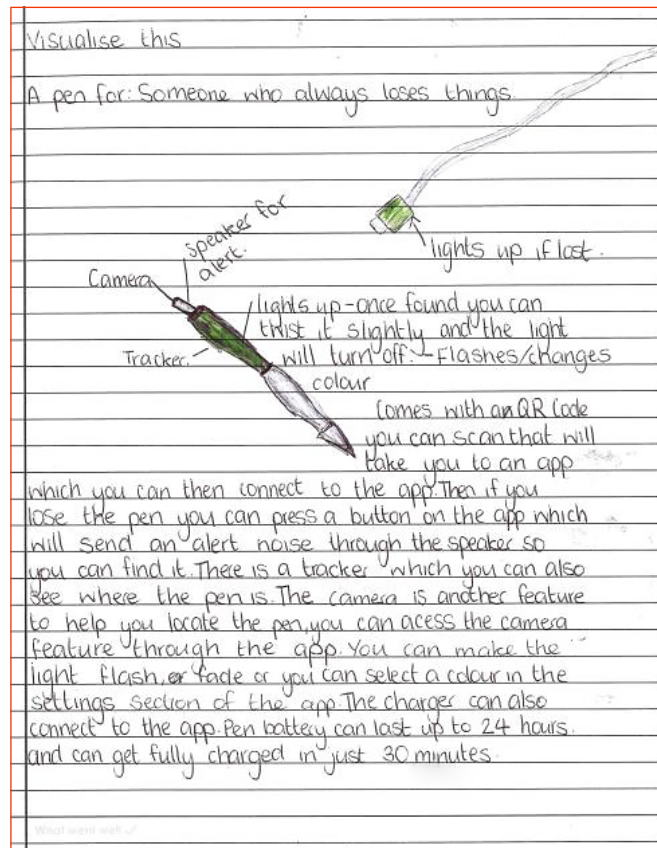 Visualise this
A pen for: Someone who always loses things.
lights up if lost.
speaker for
alert.
Camera
Tracker.
lights up - once found you can
twist it slightly and the light
will turn off. - Flashes/changes
colour
Comes with an QR Code
you can scan that will
take you to an app
which you can then connect to the app. Then if you
lose the pen you can press a button on the app which
will send an alert noise through the speaker so
you can find it. There is a tracker which you can also
see where the pen is. The camera is another feature
to help you locate the pen, you can acess the camera
feature through the app. You can make the
light flash, or fade or you can select a colour in the
settings section of the app. The charger can also
connect to the app. Pen battery can last up to 24 hours.
and can get fully charged in just 30 minutes.
What went well